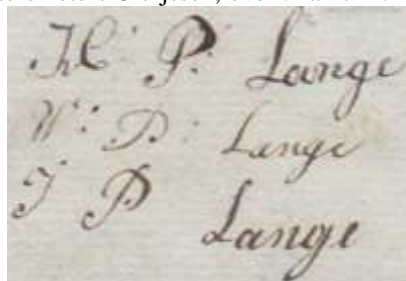 P: Lange
W: P: Lange
J P Lange